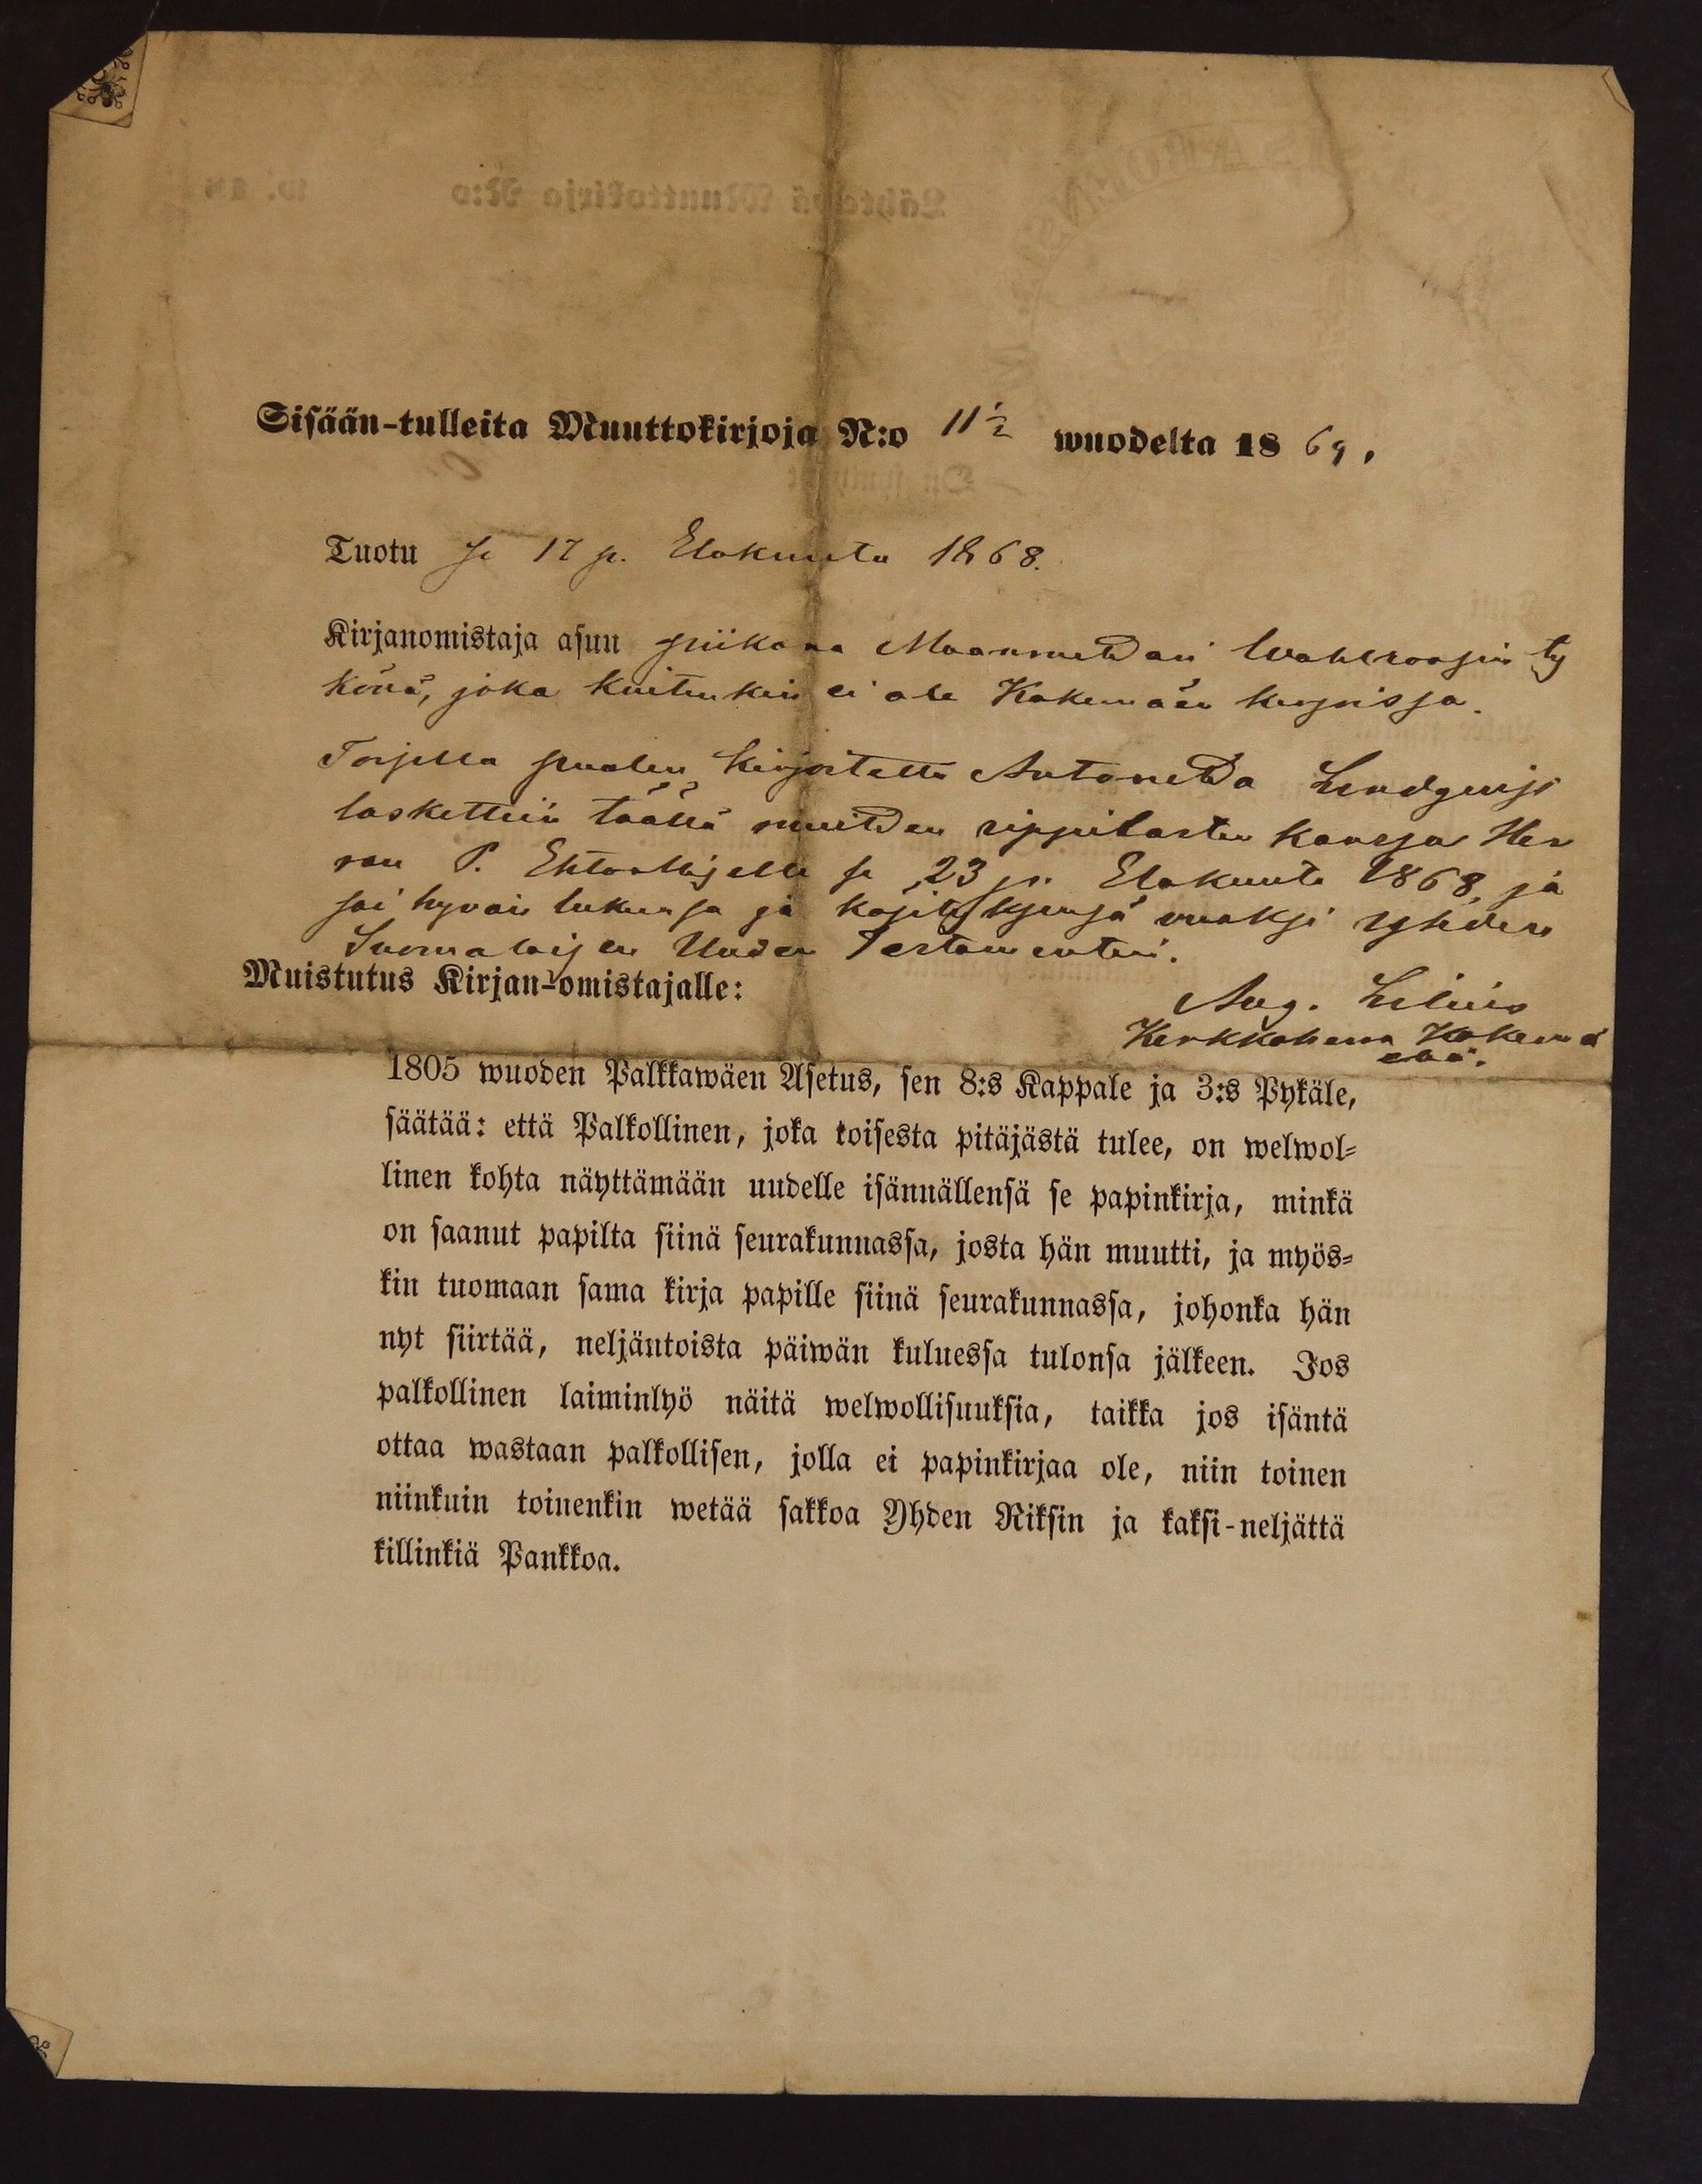 Sisään-tulleita Muuttokirjoja N:o 11½ wuodelta 1869,
Tuotu se 17 p. Elokuuta 1868.
Kirjanomistaja asuu piikana Maanmittari Wahlroosin ty
könä, joka kuitenkin ei ole Kokemäen kirjoissa.
Toisella puolen kirjoitettu Antonetta Lindqvist
laskettiin täällä muitten rippilasten kanssa Her
ran P. Ehtoolliselle se 23 p. Elokuuta 1868, ja
sai hyvän lukunsa ja käsityksensä vuoksi yhden
Suomalaisen Uuden Testamentin.
Aug. Lilius
Kirkkoherra Kokemä
Muistutus Kirjan-omistajalle:
1805 wuoden Palkkawäen Asetus, sen 8:s Kappale ja 3:s Pykäle,
säätää: että Palkollinen, joka toisesta pitäjästä tulee, on welwol=
linen kohta näyttämään uudelle isännällensä se papinkirja, minkä
on saanut papilta siinä seurakunnassa, josta hän muutti, ja myös=
kin tuomaan sama kirja papille siinä seurakunnassa, johonka hän
nyt siirtää, neljäntoista päiwän kuluessa tulonsa jälkeen. Jos
palkollinen laiminlyö näitä welwollisuuksia, taikka jos isäntä
ottaa wastaan palkollisen, jolla ei papinkirjaa ole, niin toinen
niinkuin toinenkin wetää sakkoa Yhden Riksin ja kaksi-neljättä
killinkiä Pankkoa.